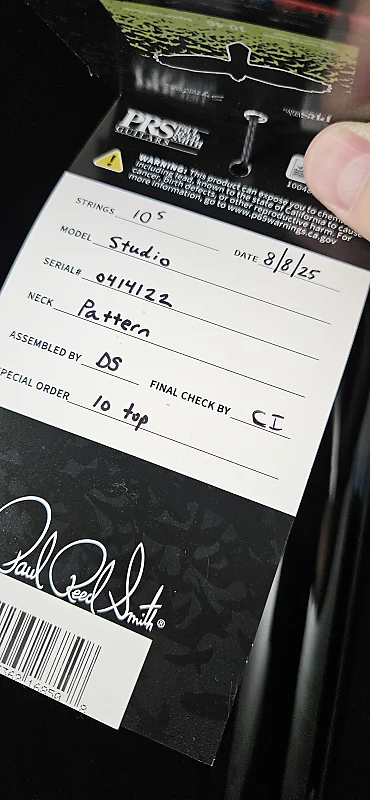 PRS PAUL REED SMITH
GUITARS
WARNING: This product can expose you to
including lead, known to the state of California to cause
cancer, birth defects, or other reproductive harm. For
more information, go to www.p65warnings.ca.gov
STRINGS 10s
MODEL Studio DATE 8/8/25
SERIAL# 0414122
NECK Pattern
ASSEMBLED BY DS FINAL CHECK BY CI
SPECIAL ORDER 10 top
Paul Reed Smith®